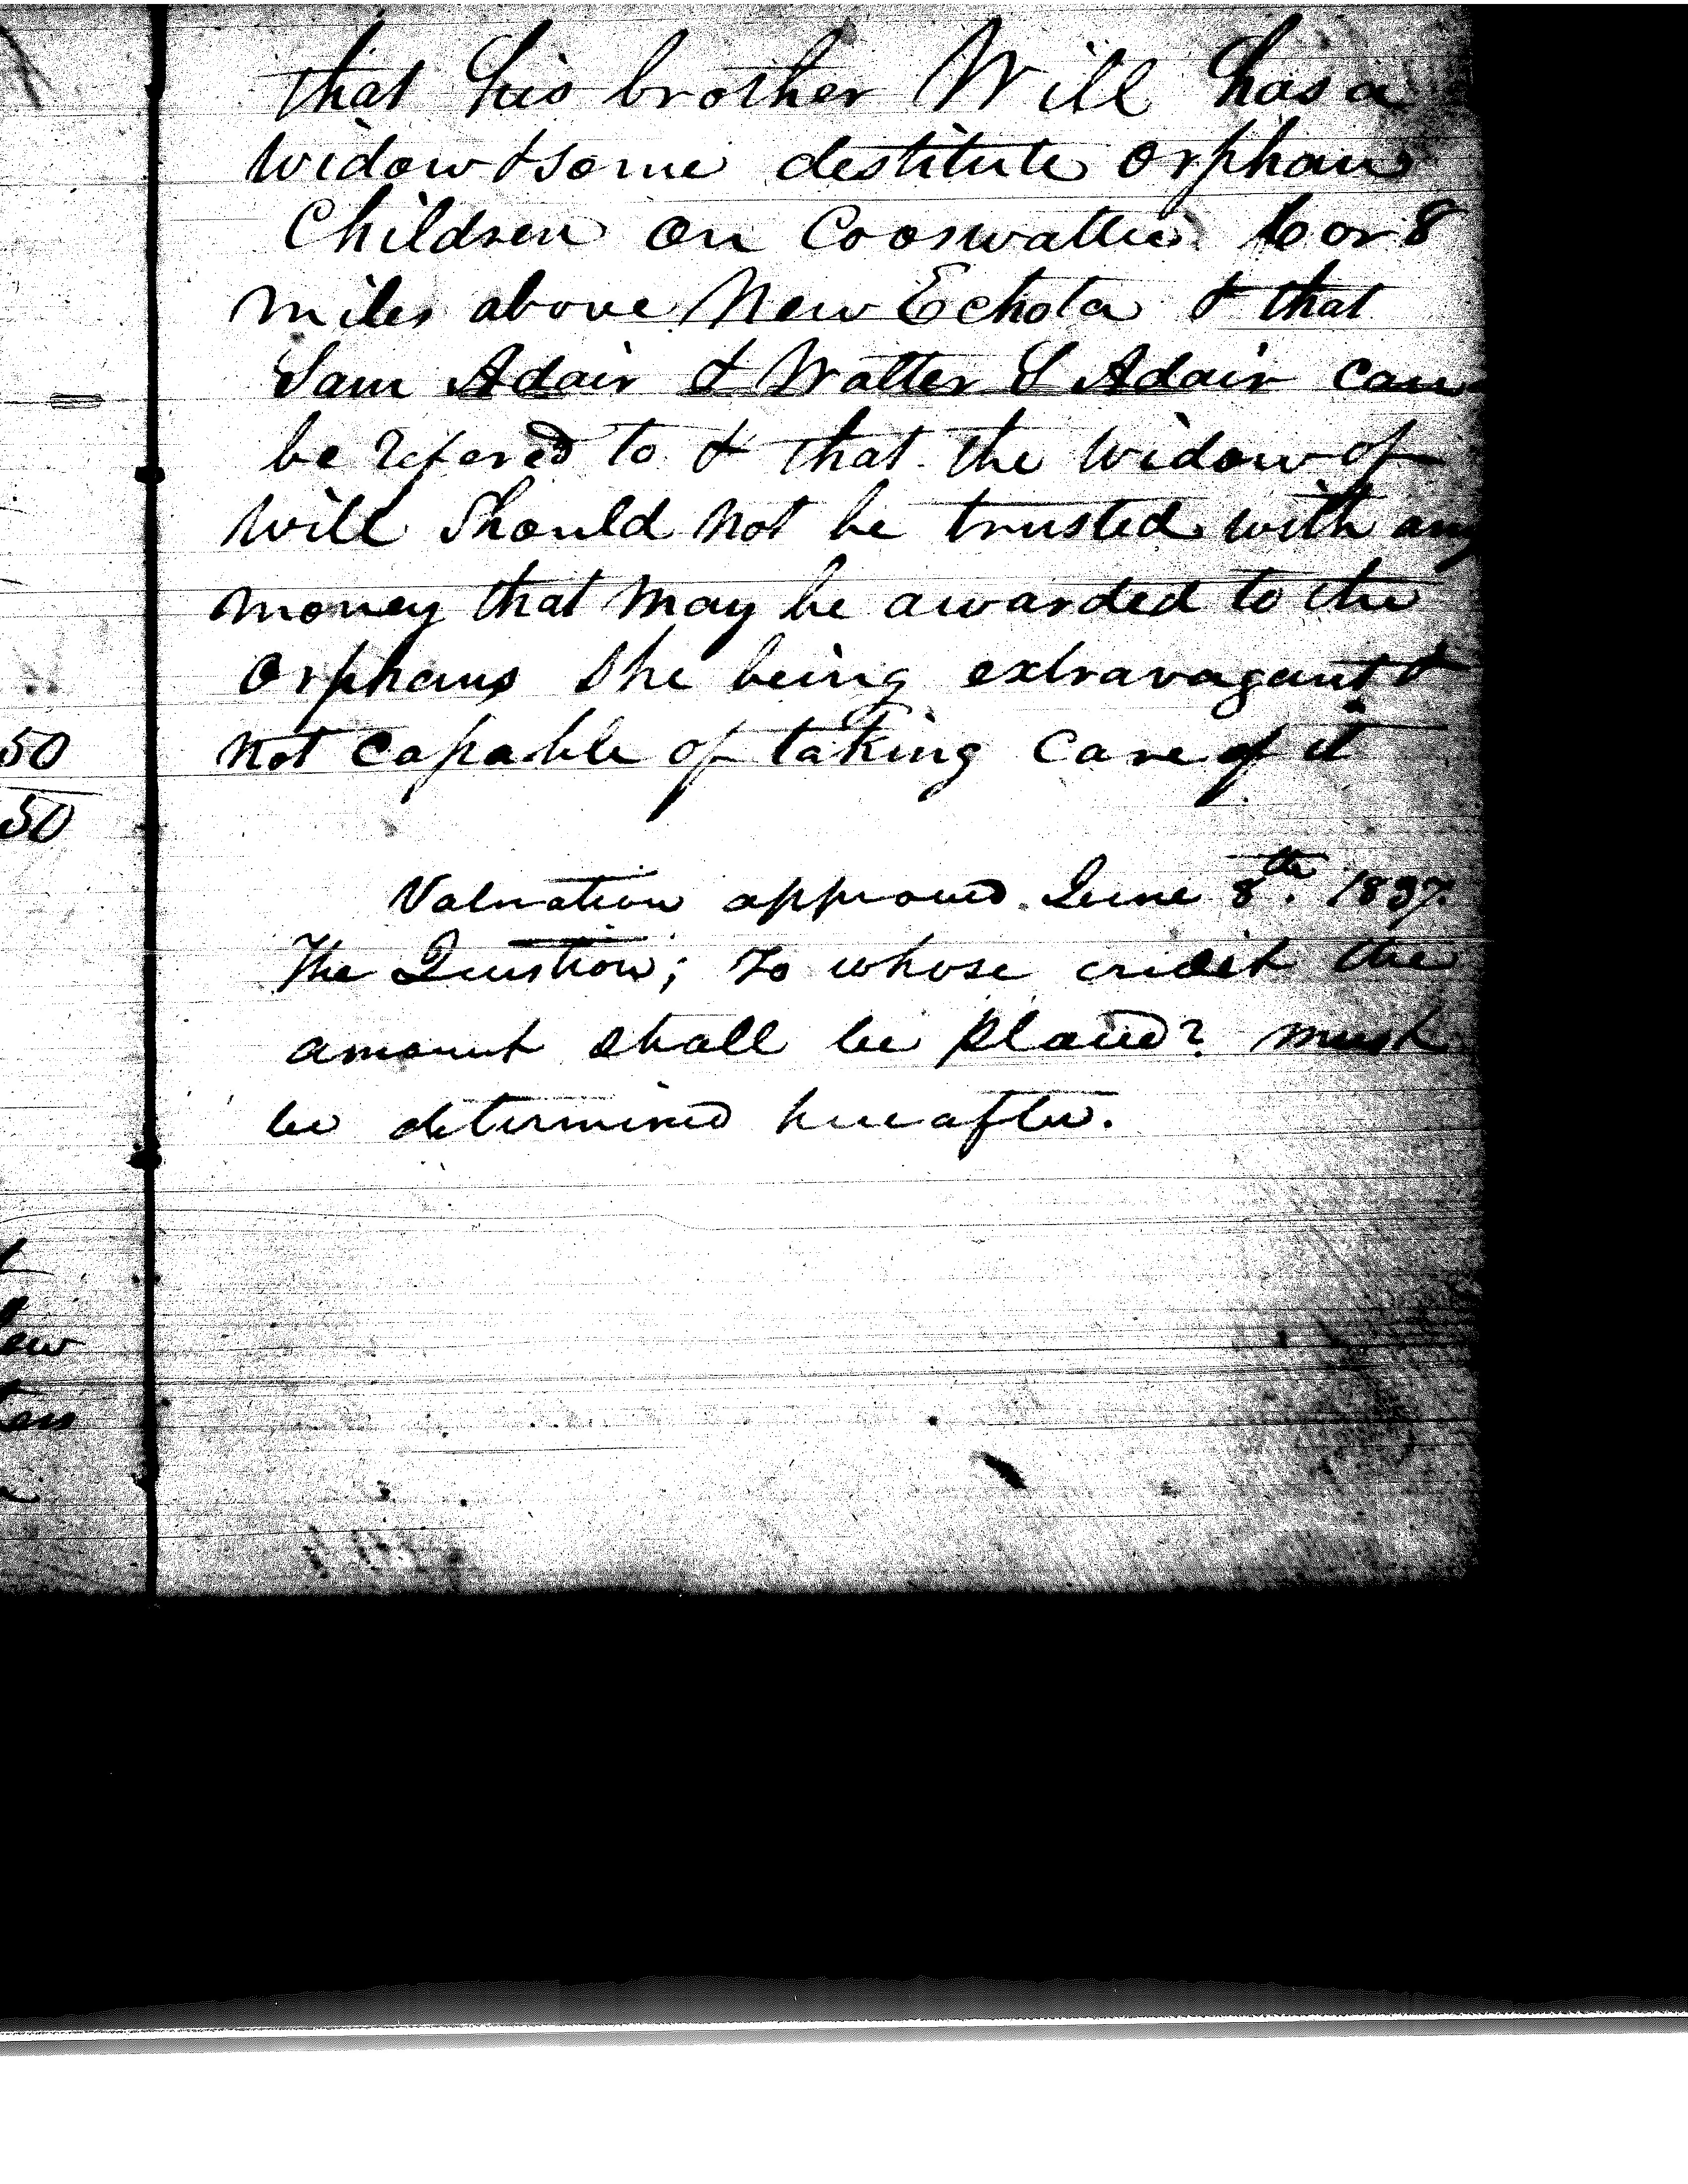 that his brother Will has a
widow & some destitute orphan
Children on Cooswattee 6 or 8
miles above New Echota & that
Sam Adair & Walter S Adair can
be refered to & that the widow of
Will Should not be trusted with any
money that may be awarded to the
Orphans She being extravagant &
not capable of taking care of it
50
50
Valuation approved June 8th. 1837.
The Question; to whose credit the
amount shall be placed? must
be determined hereafter.